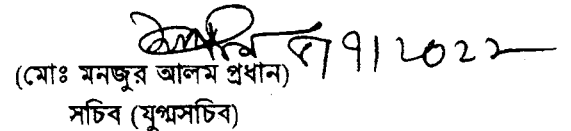 ৭/৭/২০২২
(মোঃ মনজুর আলম প্রধান)
সচিব (যুগ্মসচিব)